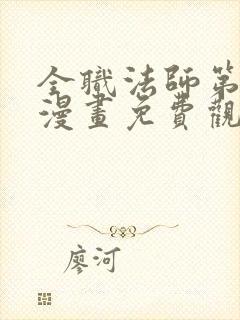 全職法師第
漫畫免費觀
廖河